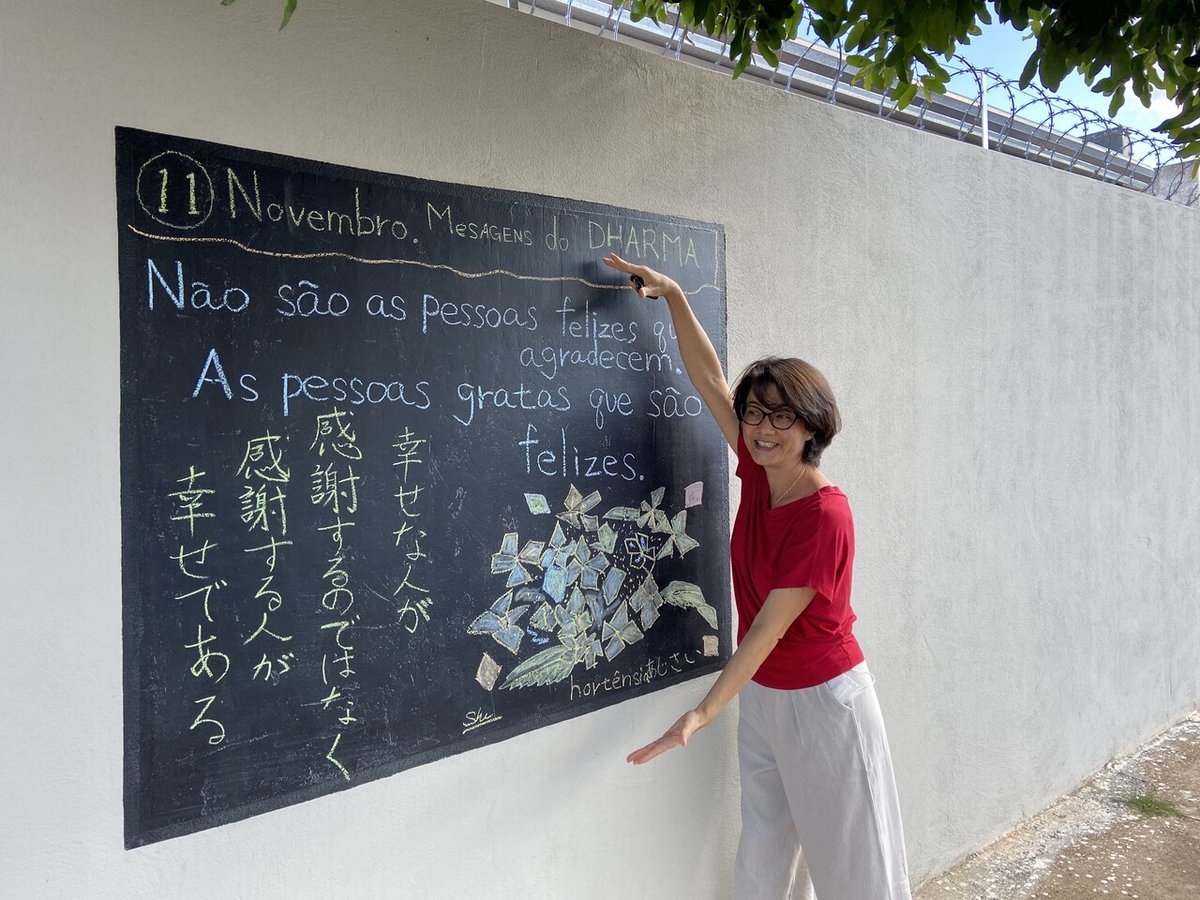 11 Novembro. MesAGENS do DHARMA
Não são as pessoas felizes qu
agradecem.
As pessoas gratas que são
felizes.
幸せな人が
感謝するのではなく
感謝する人が
幸せである
hortênsia あじさい